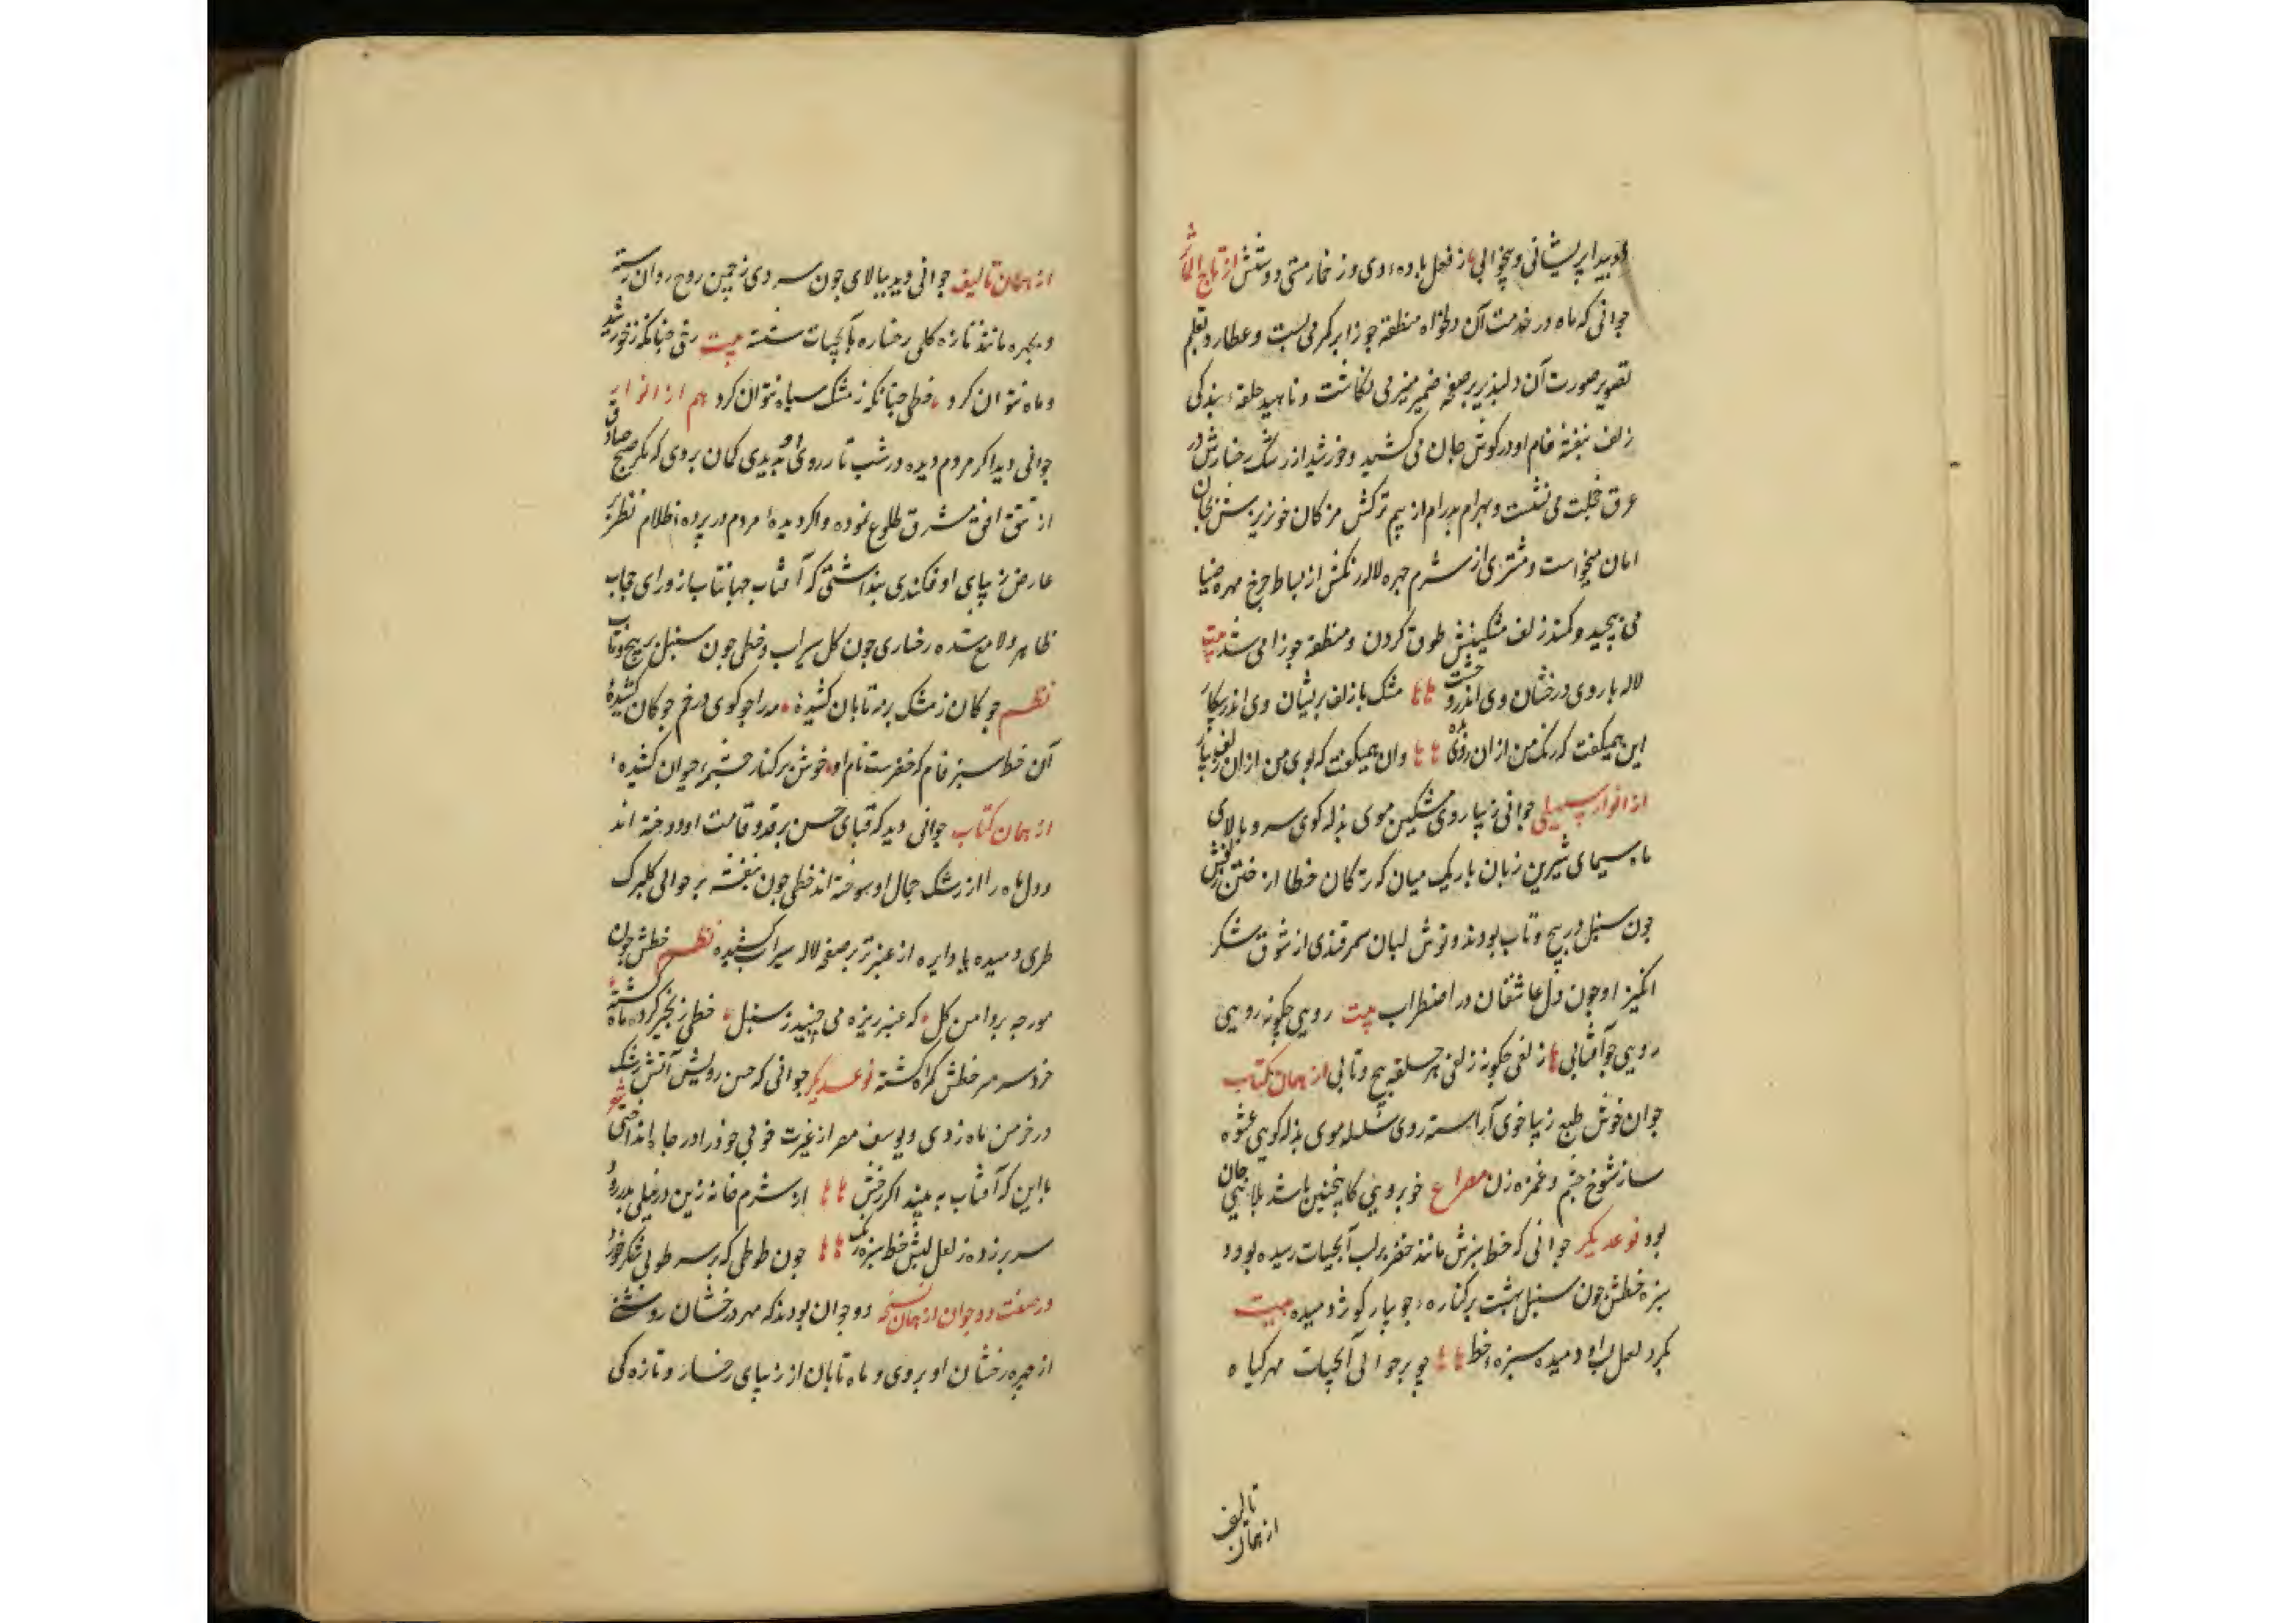 هویدا پریشانی و بیخوابی از فعل باده دی و ز خمار مستی دوشش از تاج المآثر
جوانی که ماه در خدمت آن دلخواه منطقه جوزا بر کمر می بست و عطارد بقلم
تصویر صورت آن دلپذیر بر صفحه ضمیر منیر می نگاشت و ناهید حلقه بندکی
زلف بنفشه فام او در کوش جان می کشید و خورشید از رشک رخسارش در
عرق خجلت می نشست و بهرام بدرام از بیم ترکش مژکان خونریزش بجان
امان میخواست و مشتری از شرم چهره لاله رنکش از بساط چرخ مهره ضیا
می پیچید و کمند زلف مشکینش طوق کردن و منطقه جوزا می شد بیت
لاله با روی درخشان وی اندر و حشت مشک با زلف پریشان وی اندر پیکار
این همیکفت که رنک من ازان روی بده وان همیکفت که بوی من ازان زلف بیار
از انوار سهیلی جوانی زیبا روی مشکین موی بذله کوی سرو بالای
ماه سیمای شیرین زبان باریک میان که ترکان خطا از ختن زلفش
چون سنبل در پیچ و تاب بودند و نوش لبان سمرقندی از شوق شکر
انکیز او چون دل عاشقان در اضطراب بیت رویی چکونه رویی
رویی چو آفتابی زلفی چکونه زلفی هر حلقه پیچ و تابی از همان کتاب
جوان خوش طبع زیبا خوی آراسته روی سلسله موی بذله کویی عشوه
ساز شوخ چشم و غمزه زن مصراع خوبرویی کاینچنین باشد بلای جان
بود نوعدیکر جوانی که خط سبزش مانند خضر بر لب آبحیات رسیده بود و
سبزه خطش چون سنبل بهشت بر کناره جویبار کوثر دمیده بیت
بکرد لعل لب او دمیده سبزه خط چو بر حوالی آبحیات مهر کیاه
تالیف
از همان
از همان تالیف جوانی دید ببالای چون سروی ز چمن روح روان رسته
و بچهره مانند تازه کلی رخساره بآبحیات شسته بیت رخی چنانکه ز خورشید
و ماه نتوان کرد خطی چنانکه ز مشک سیاه نتوان کرد هم از انوار
جوانی دید اکر مردم دیده در شب تار روی او بدیدی کمان بردی که مکر صبح صادق
از تتق افق مشرق طلوع نموده و اکر دیده مردم در پرده ظلام نظر بر
عارض زیبای او فکندی پنداشتی که آفتاب جهانتاب از ورای حجاب
ظاهر و لامع شده رخساری چون کل سیراب و خطی چون سنبل پر پیچ و تاب
نظم چوکان ز مشک بر مه تابان کشیده مه را چو کوی در خم چوکان کشیده
آن خط سبز فام که خضرست نام او خوش بر کنار چشمه حیوان کشیده
از همان کتاب جوانی دید که قبای حسن بر قد و قامت او دوخته اند
و دل ماه را از رشک جمال او سوخته اند خطی چون بنفشه بر حوالی کلبرک
طری دمیده یا دایره از عنبر تر بر صفحه لاله سیراب کشیده نظم خطش چون
مورچه بر دامن کل که عنبر ریزه می چیند ز سنبل خطی زنجیر کرد ماه کشته
خرد سر بر خطش کمراه کشته نوعدیکر جوانی که حسن رویش آتش رشک
در خرمن ماه زدی و یوسف مصر از غیرت خوبی خود را در چاه انداختی شعر
با این که آفتاب به بیند اکر رخش از شرم خانه زین در نیلی بدر رود
سر بر زده ز لعل لبش خط سبز رنک چون طوطی که بر سر طوبی شکر خورد
در صفت دو جوان از همان نسخه دو جوان بودند که مهر درخشان روشنی
از چهره رخشان او بردی و ماه تابان از زیبای رخسار و تازه کی